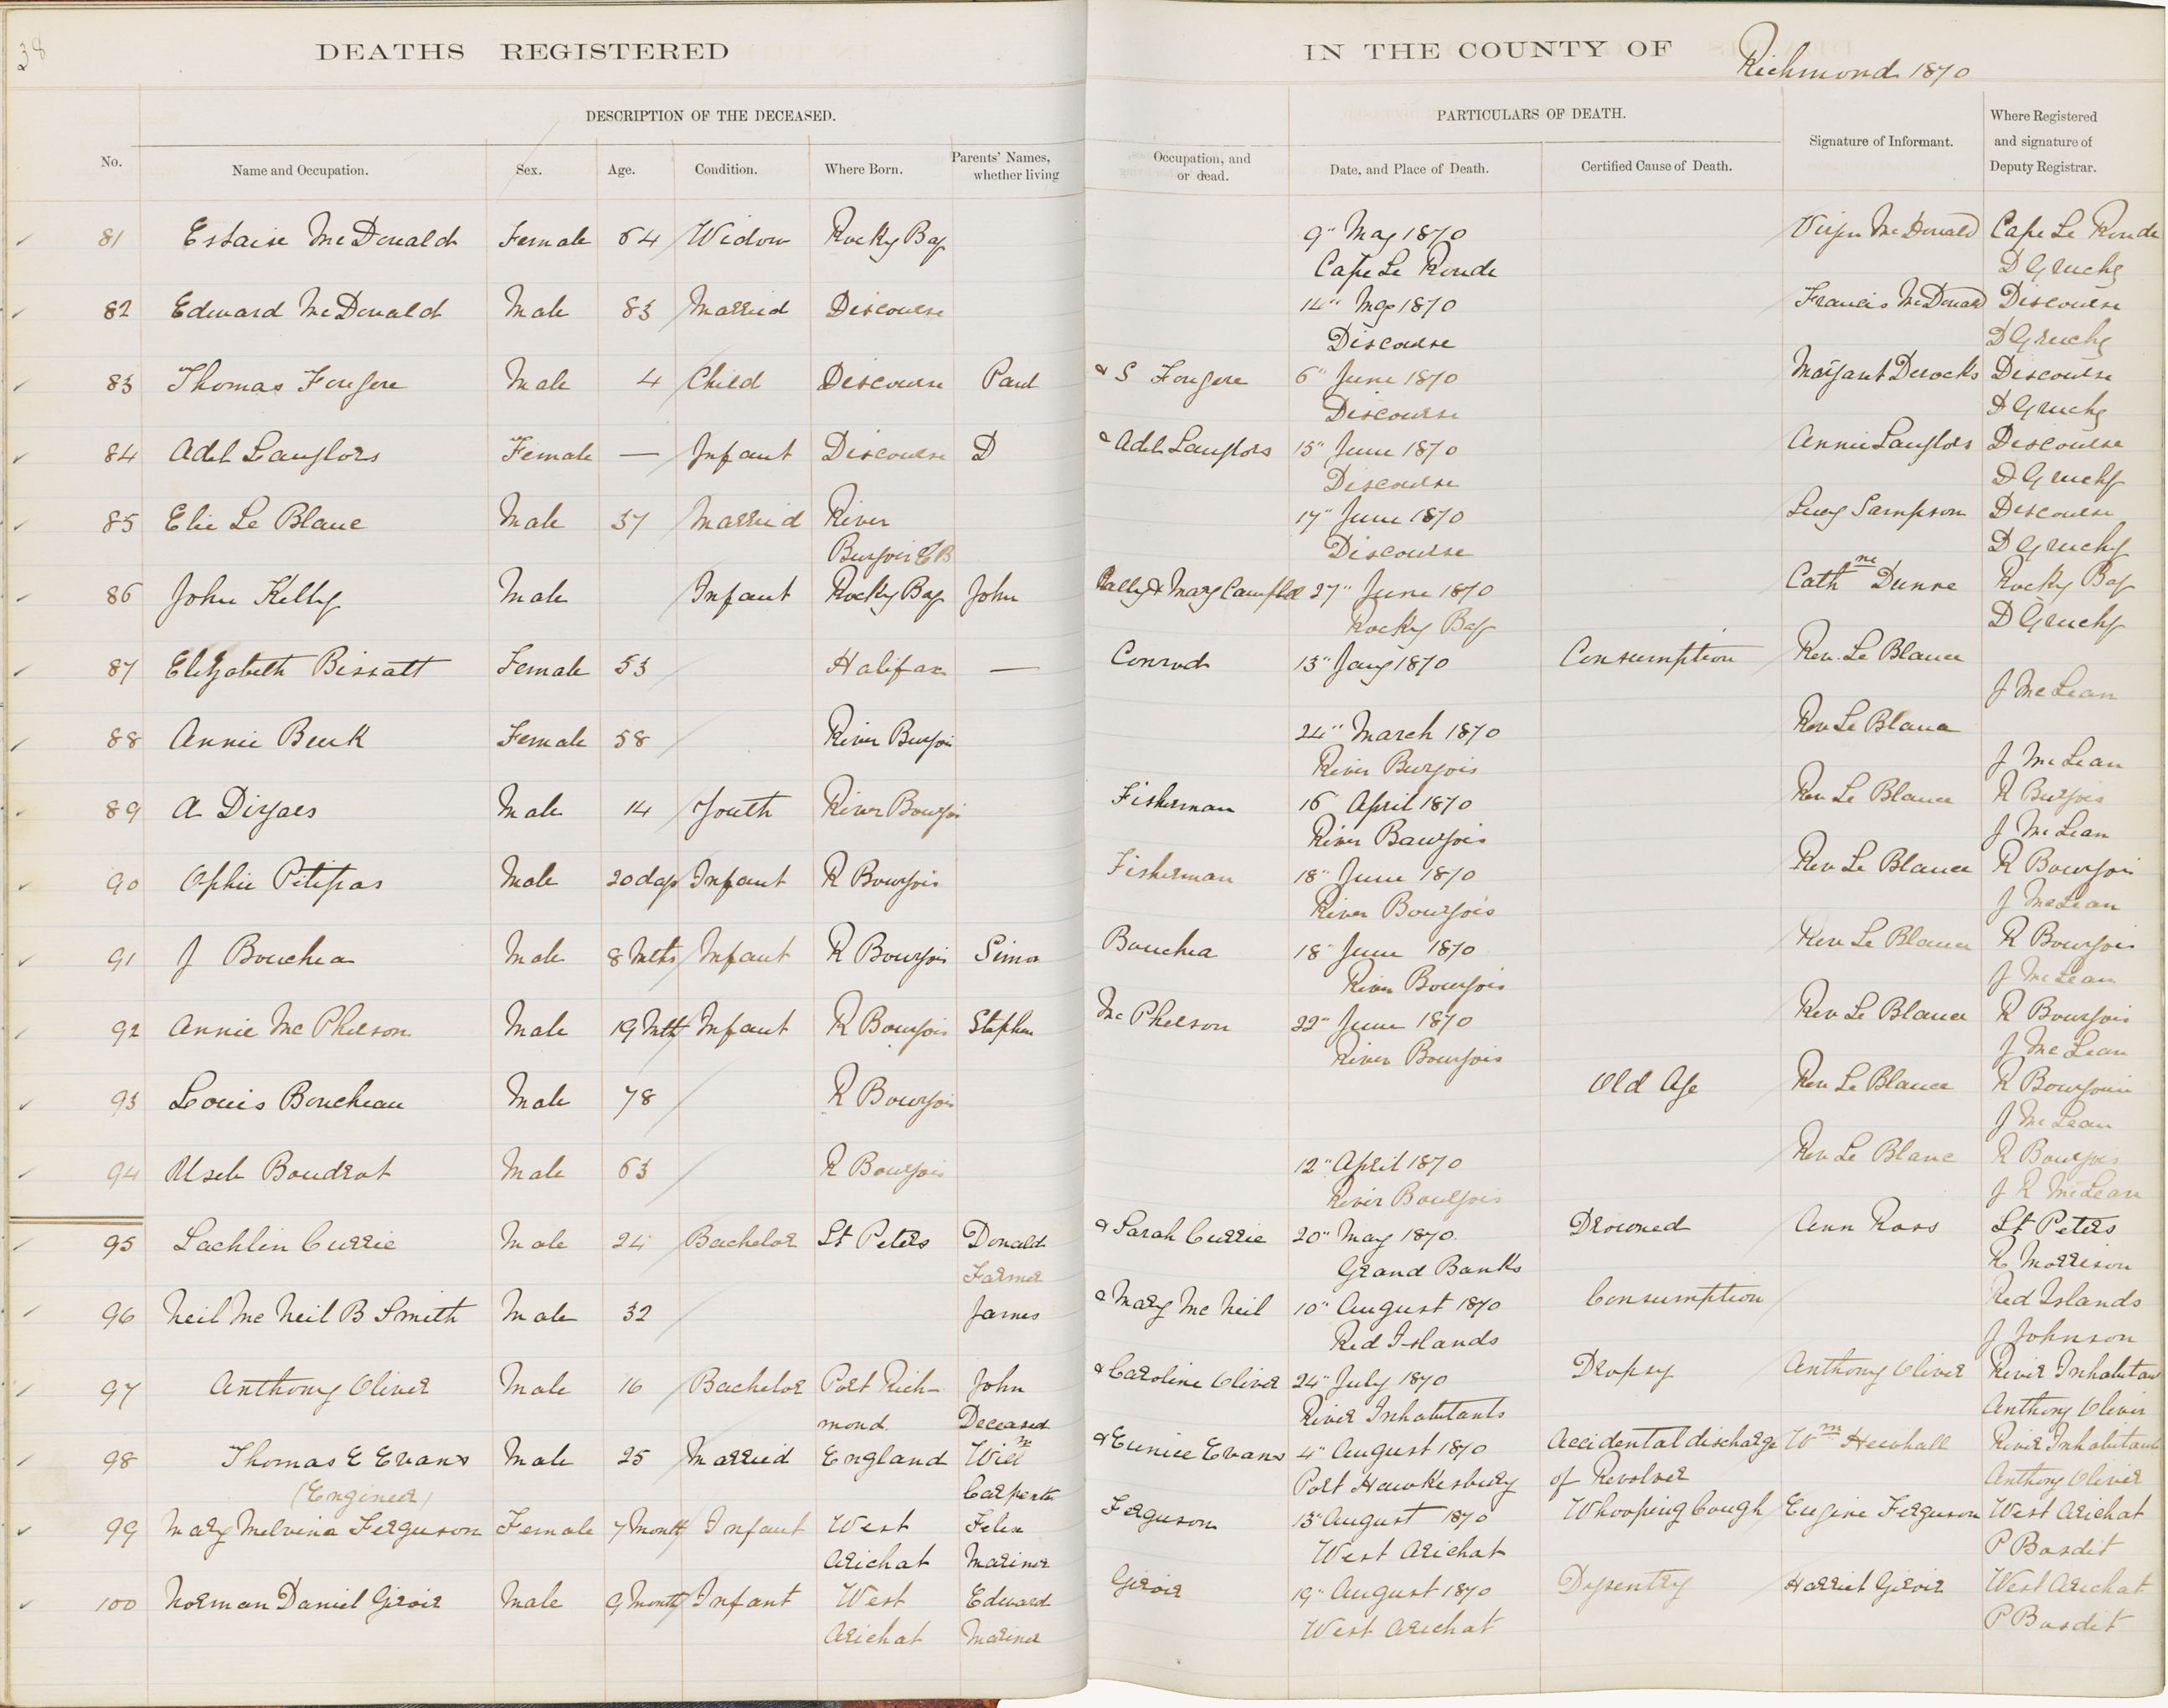 38
DEATHS REGISTERED IN THE COUNTY OF Richmond 1870
DESCRIPTION OF THE DECEASED. PARTICULARS OF DEATH.
No. Name and Occupation. Sex. Age. Condition. Where Born. Parents' Names, whether living Occupation, and or dead. Date, and Place of Death. Certified Cause of Death. Signature of Informant. Where Registered and signature of Deputy Registrar.
81 McDonald Female 64 Widow Rocky Bay 9" May 1870 McDonald Cape Le Ronde
Cape Le Ronde D Gruchy
82 Edward McDonald Male 83 Married Discourse 14" May 1870 Francis McDonald Discourse
Discourse D Gruchy
83 Thomas Fougere Male 4 Child Discourse Paul & S Fougere 6" June 1870 Margaret Derocks Discourse
Discourse D Gruchy
84 Adel Langlors Female — Infant Discourse D & Adel Langlors 15" June 1870 Annie Langlors Discourse
Discourse D Gruchy
85 Elie Le Blanc Male 37 Married River 17" June 1870 Lucy Sampson Discourse
Burjois CB Discourse D Gruchy
86 John Kelly Male Infant Rocky Bay John & Mary 27" June 1870 Cathne Dunne Rocky Bay
Rocky Bay D Gruchy
87 Elizabeth Bissatt Female 53 Halifax — Conrod 13" Jany 1870 Consumption Rev Le Blanc
J McLean
88 Annie Female 58 River Burjois 24" March 1870 Rev Le Blanc
River Burjois J McLean
89 A Male 14 Youth River Bourjois Fisherman 16 April 1870 Rev Le Blanc R Burjois
River Bourjois J McLean
90 Ophie Petipas Male 20 days Infant R Bourjois Fisherman 18" June 1870 Rev Le Blanc R Bourjois
River Bourjois J McLean
91 J Bouchea Male 8 Mths Infant R Bourjois Simon Bouchea 18" June 1870 Rev Le Blanc R Bourjois
River Bourjois J McLean
92 Annie McPherson Male 19 Mth Infant R Bourjois Stephen McPherson 22" June 1870 Rev Le Blanc R Bourjois
River Bourjois J McLean
93 Louis Boucheau Male 78 R Bourjois Old Age Rev Le Blanc R Bourjois
J McLean
94 Useb Boudrot Male 63 R Bourjois 12" April 1870 Rev Le Blanc R Bourjois
River Bourjois J R McLean
95 Lachlin Currie Male 24 Bachelor St Peters Donald & Sarah Currie 20" May 1870. Drowned Ann Ross St Peters
Farmer Grand Banks R Morrison
96 Neil McNeil B Smith Male 32 James & Mary McNeil 10" August 1870 Consumption Red Islands
Red Islands J Johnson
97 Anthony Oliver Male 16 Bachelor Port Rich- John & Caroline Oliver 24" July 1870 Dropsy Anthony Oliver River Inhabitan
mond. Deceased River Inhabitants Anthony Oliver
98 Thomas E Evans Male 25 Married England Willm & Eunice Evans 4" August 1870 Accidental discharge Wm Hewhall River Inhabitants
(Engineer) Carpenter Port Hawkesbury of Revolver Anthony Oliver
99 Mary Melvina Ferguson Female 7 Month Infant West Felix Ferguson 13" August 1870 Whooping Cough Eugine Ferguson West Arichat
Arichat Mariner West Arichat P Bosdit
100 Norman Daniel Giroir Male 9 Month Infant West Edward Giroir 19" August 1870 Dysentry Harriet Giroir West Arichat
Arichat Mariner West Arichat P Bosdit